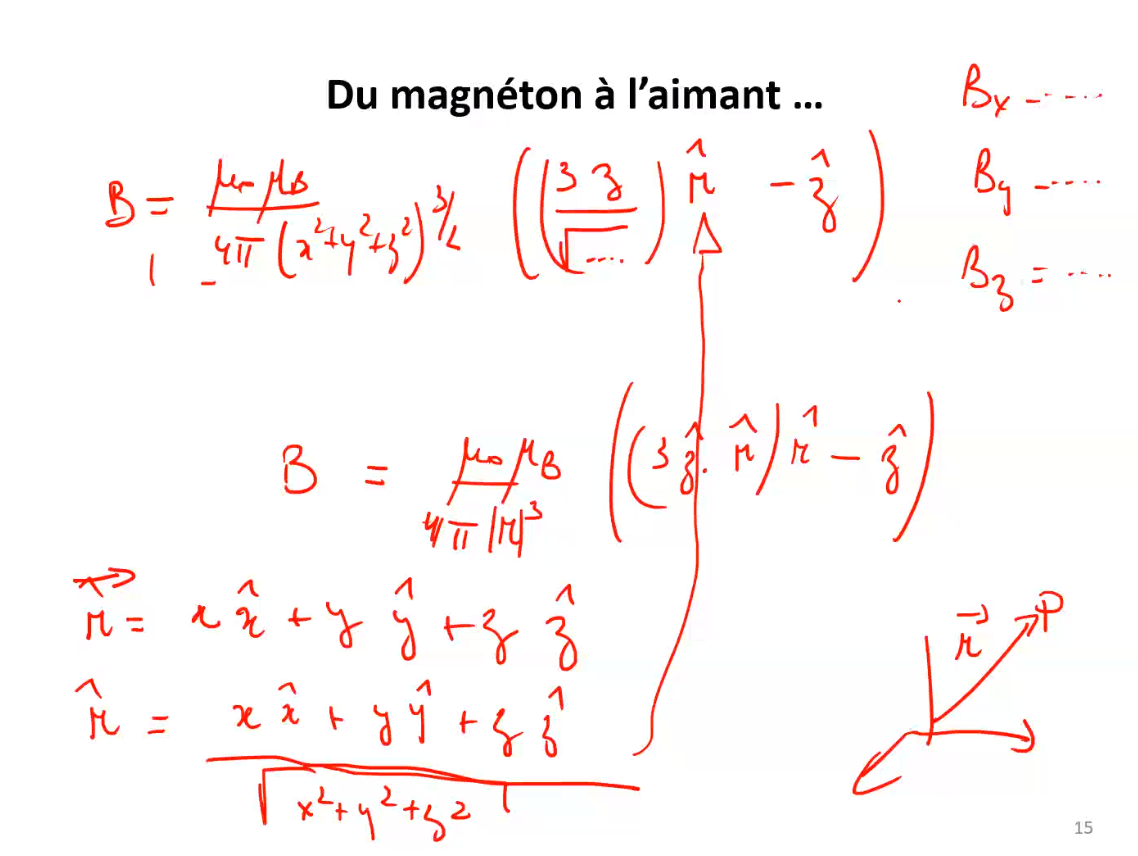 Du magnéton à l'aimant ...
B = μ₀ μB / 4π (x²+y²+z²)^3/2 ( ( 3 z / √.... ) r̂ - ẑ )
Bx = .....
By = .....
Bz = ....
B = μ₀ μB / 4π |r|³ ( (3 ẑ . r̂) r̂ - ẑ )
r⃗ = x x̂ + y ŷ + z ẑ
r̂ = x x̂ + y ŷ + z ẑ / √x²+y²+z²
r⃗ P
15